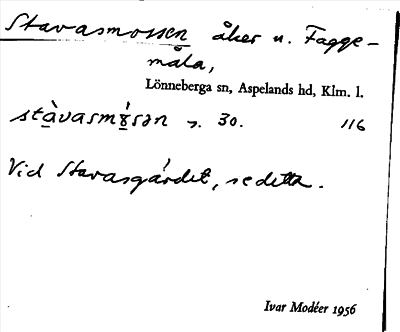 Stavasmossen åker u. Fagge-
måla,
Lönneberga sn, Aspelands hd, Klm. l.
stàvasmó̤sən s. 30. 116
Vid Stavasgärdet, se detta.
Ivar Modéer 1956